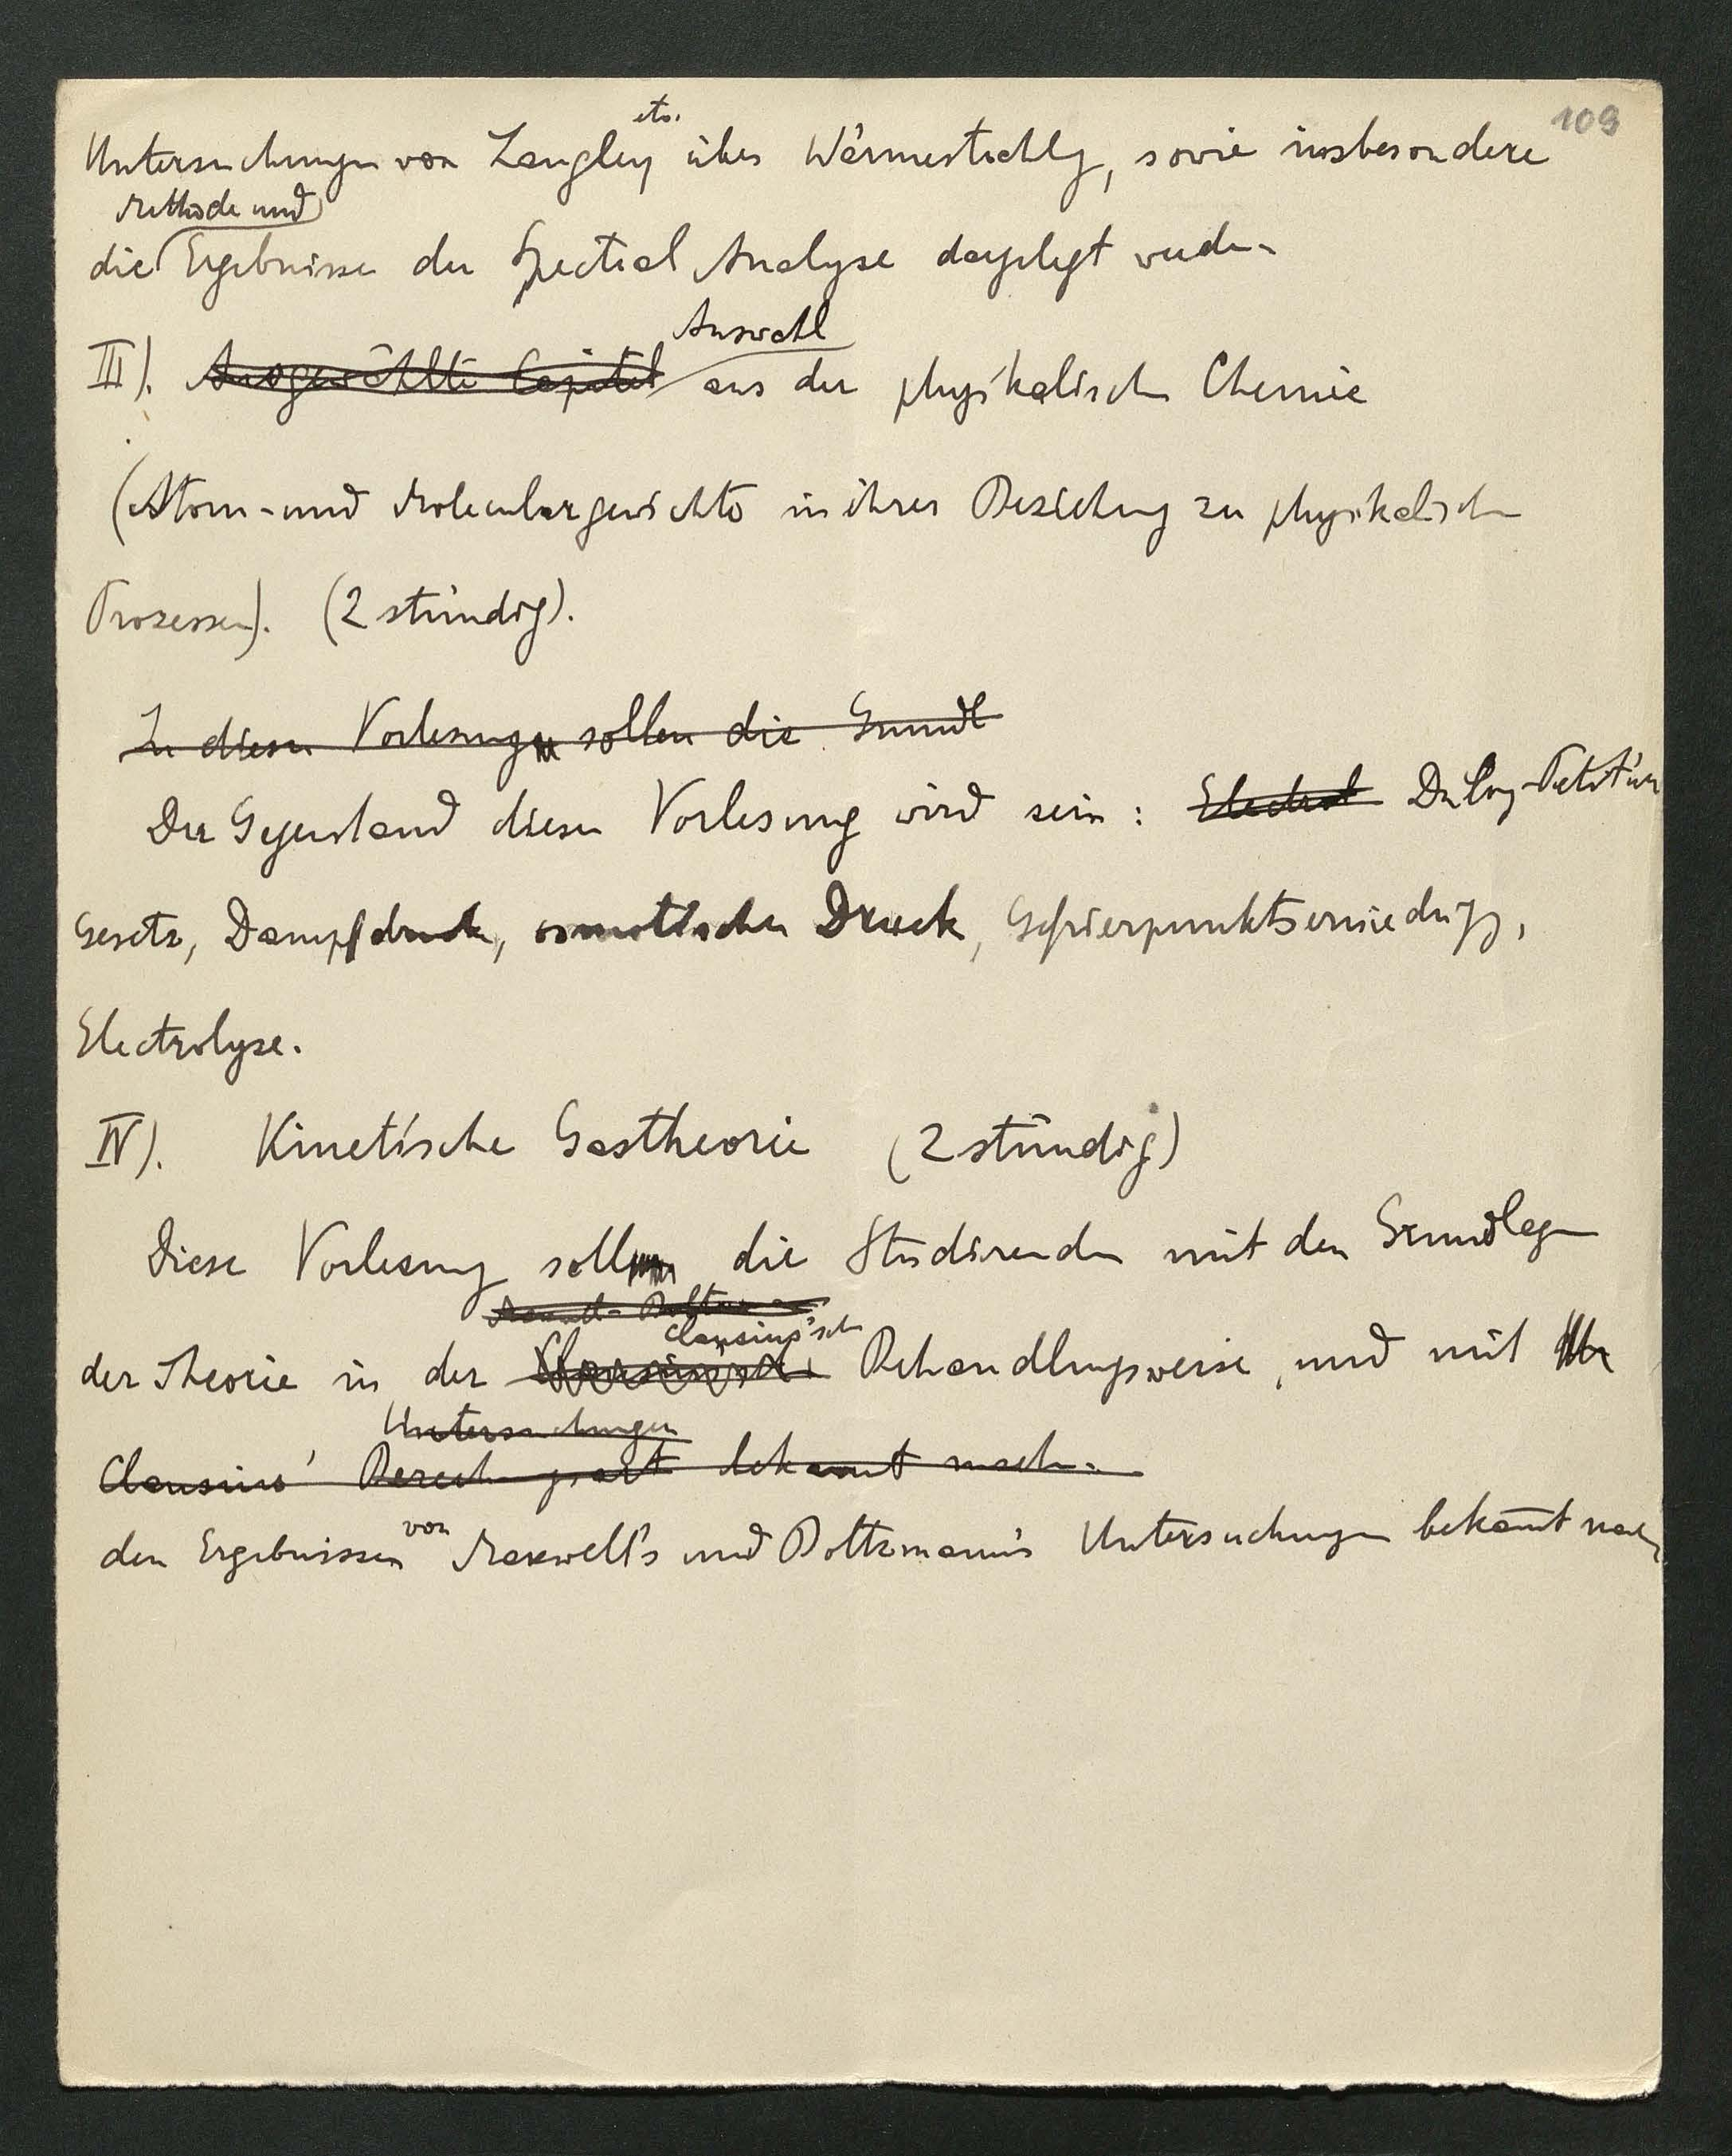 109
etc.
Untersuchungen von Langley über Wärmestrahlg, sowie insbesondere
Methode und
die Ergebnisse der Spectral Analyse dargelegt werden
Auswahl
III). Ausgewählte Capitel aus der physikalischen Chemie
(Atom- und Moleculargewichte in ihrer Beziehung zu physikalischen
Prozessen). (2 stündig).
In diesen Vorlesungen sollen die Grundl
Der Gegenstand dieser Vorlesung wird sein: Electrol Dulong-Petit's
Gesetz, Dampfdruck, osmotischer Druck, Gefrierpunktserniedrigg,
Electrolyse.
IV). Kinetische Gastheorie (2 stündig)
Diese Vorlesung soll die Studirenden mit den Grundlagen
Clausius'schen
der Theorie in der Clausius'schen Behandlungsweise, und mit
Untersuchungen
Clausius' bekannt machen
von
den Ergebnissen Maxwell's und Boltzmann's Untersuchungen bekannt machen